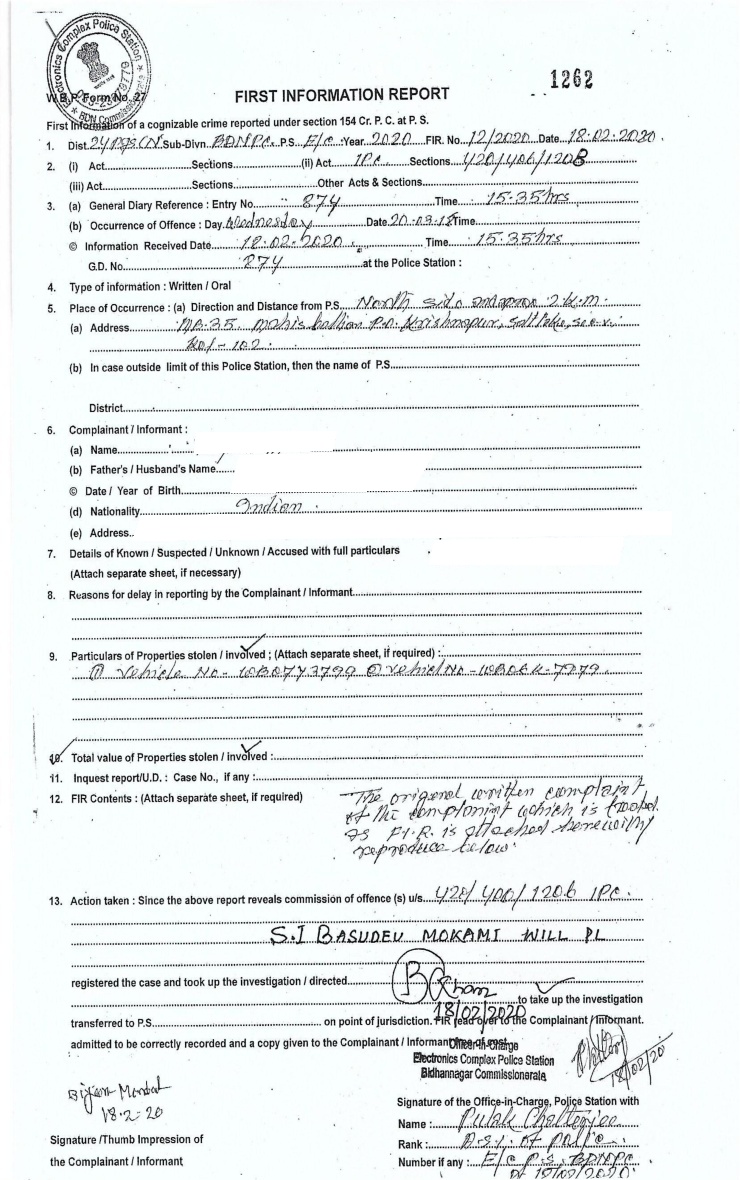 Electronics Complex Police Station
BDN Commissionerate
1262
W.B.P. Form No. 27
FIRST INFORMATION REPORT
First Information of a cognizable crime reported under section 154 Cr. P. C. at P. S.
1. Dist. 24 Pgs (N) Sub-Divn. BDNPC. P.S. E/C Year 2020 FIR. No. 12/2020 Date 18.02.2020.
2. (i) Act............Sections............(ii) Act IPC Sections 420/406/120B
(iii) Act............Sections............Other Acts & Sections............
3. (a) General Diary Reference : Entry No. 874 Time 15.35 hrs
(b) Occurrence of Offence : Day. Wednesday Date 20.03.18 Time
© Information Received Date 18.02.2020 Time 15.35 hrs
G.D. No. 874 at the Police Station :
4. Type of information : Written / Oral
5. Place of Occurrence : (a) Direction and Distance from P.S. North side 2 k.m.
(a) Address MB-35 P.O. Krishnapur, Salt Lake,
Kol - 102.
(b) In case outside limit of this Police Station, then the name of P.S.
District
6. Complainant / Informant :
(a) Name
(b) Father's / Husband's Name
© Date / Year of Birth
(d) Nationality Indian.
(e) Address..
7. Details of Known / Suspected / Unknown / Accused with full particulars
(Attach separate sheet, if necessary)
8. Reasons for delay in reporting by the Complainant / Informant
9. Particulars of Properties stolen / involved ; (Attach separate sheet, if required) :
① Vehicle No - ② Vehicle No -
10. Total value of Properties stolen / involved :
11. Inquest report/U.D. : Case No., if any :
12. FIR Contents : (Attach separate sheet, if required) The original written complaint
of the complainant which is treated
as F.I.R. is attached herewith/
reproduce below.
13. Action taken : Since the above report reveals commission of offence (s) u/s. 420/406/120B IPC.
S.I BASUDEV MOKAMI WILL PL
registered the case and took up the investigation / directed
to take up the investigation
18/02/2020
transferred to P.S. on point of jurisdiction. FIR read over to the Complainant / Informant.
admitted to be correctly recorded and a copy given to the Complainant / Informant free of cost.
Officer-in-Charge
Electronics Complex Police Station
Bidhannagar Commissionerate
18/02/20
Bijan Mondal
18-2-20
Signature of the Office-in-Charge, Police Station with
Name : Pulak Chatterjee
Rank : A.S.I. of Police.
Signature /Thumb Impression of
the Complainant / Informant
Number if any : E/C P.S., BDNPC
Dt 18/02/2020